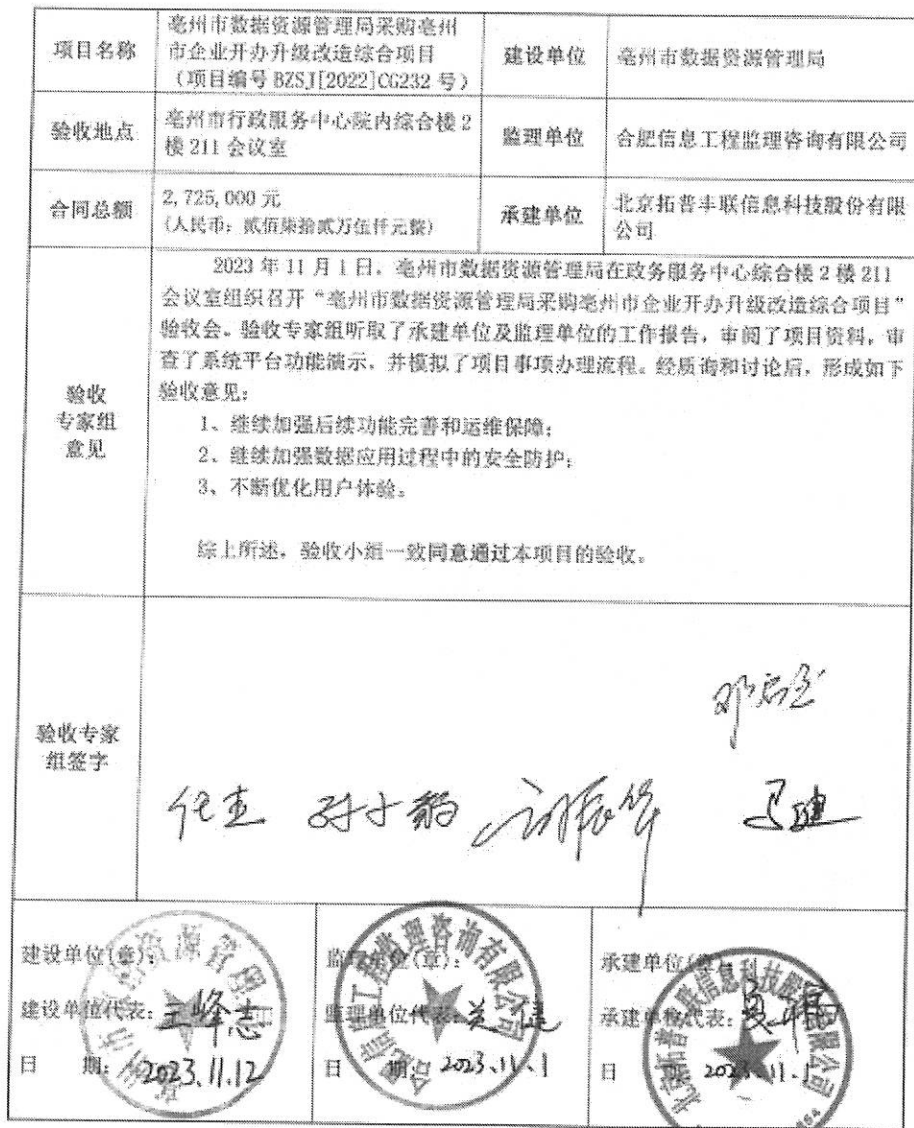 项目名称
亳州市数据资源管理局采购亳州
市企业开办升级改造综合项目
（项目编号 BZSJ[2022]CG232 号）
建设单位
亳州市数据资源管理局
验收地点
亳州市行政服务中心院内综合楼 2
楼 211 会议室
监理单位
合肥信息工程监理咨询有限公司
合同总额
2,725,000 元
(人民币：贰佰柒拾贰万伍仟元整)
承建单位
北京拓普丰联信息科技股份有限
公司
验收
专家组
意见
2023 年 11 月 1 日，亳州市数据资源管理局在政务服务中心综合楼 2 楼 211
会议室组织召开“亳州市数据资源管理局采购亳州市企业开办升级改造综合项目”
验收会。验收专家组听取了承建单位及监理单位的工作报告，审阅了项目资料，审
查了系统平台功能演示，并模拟了项目事项办理流程。经质询和讨论后，形成如下
验收意见：
1、继续加强后续功能完善和运维保障；
2、继续加强数据应用过程中的安全防护；
3、不断优化用户体验。
综上所述，验收小组一致同意通过本项目的验收。
验收专家
组签字
建设单位(章)：
建设单位代表：
日 期：2023.11.12
监理单位(章)：
监理单位代表：
日 期：2023.11.1
承建单位(章)
承建单位代表：
日 2023.11.1
合肥信息工程监理咨询有限公司
北京拓普丰联信息科技股份有限公司